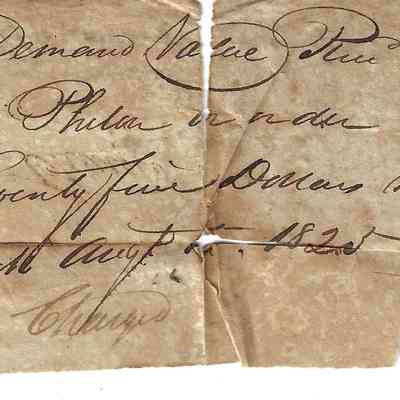 Demand Value Rec
Philon or order
wenty five Dollars
Augt 1825
Charged